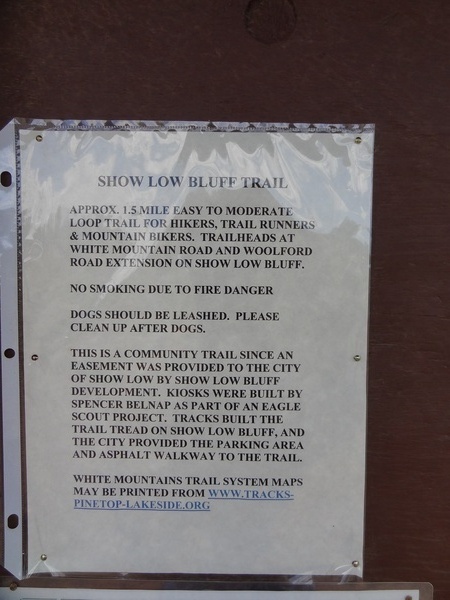 SHOW LOW BLUFF TRAIL
APPROX. 1.5 MILE EASY TO MODERATE
LOOP TRAIL FOR HIKERS, TRAIL RUNNERS
& MOUNTAIN BIKERS. TRAILHEADS AT
WHITE MOUNTAIN ROAD AND WOOLFORD
ROAD EXTENSION ON SHOW LOW BLUFF.
NO SMOKING DUE TO FIRE DANGER
DOGS SHOULD BE LEASHED. PLEASE
CLEAN UP AFTER DOGS.
THIS IS A COMMUNITY TRAIL SINCE AN
EASEMENT WAS PROVIDED TO THE CITY
OF SHOW LOW BY SHOW LOW BLUFF
DEVELOPMENT. KIOSKS WERE BUILT BY
SPENCER BELNAP AS PART OF AN EAGLE
SCOUT PROJECT. TRACKS BUILT THE
TRAIL TREAD ON SHOW LOW BLUFF, AND
THE CITY PROVIDED THE PARKING AREA
AND ASPHALT WALKWAY TO THE TRAIL.
WHITE MOUNTAINS TRAIL SYSTEM MAPS
MAY BE PRINTED FROM WWW.TRACKS-
PINETOP-LAKESIDE.ORG